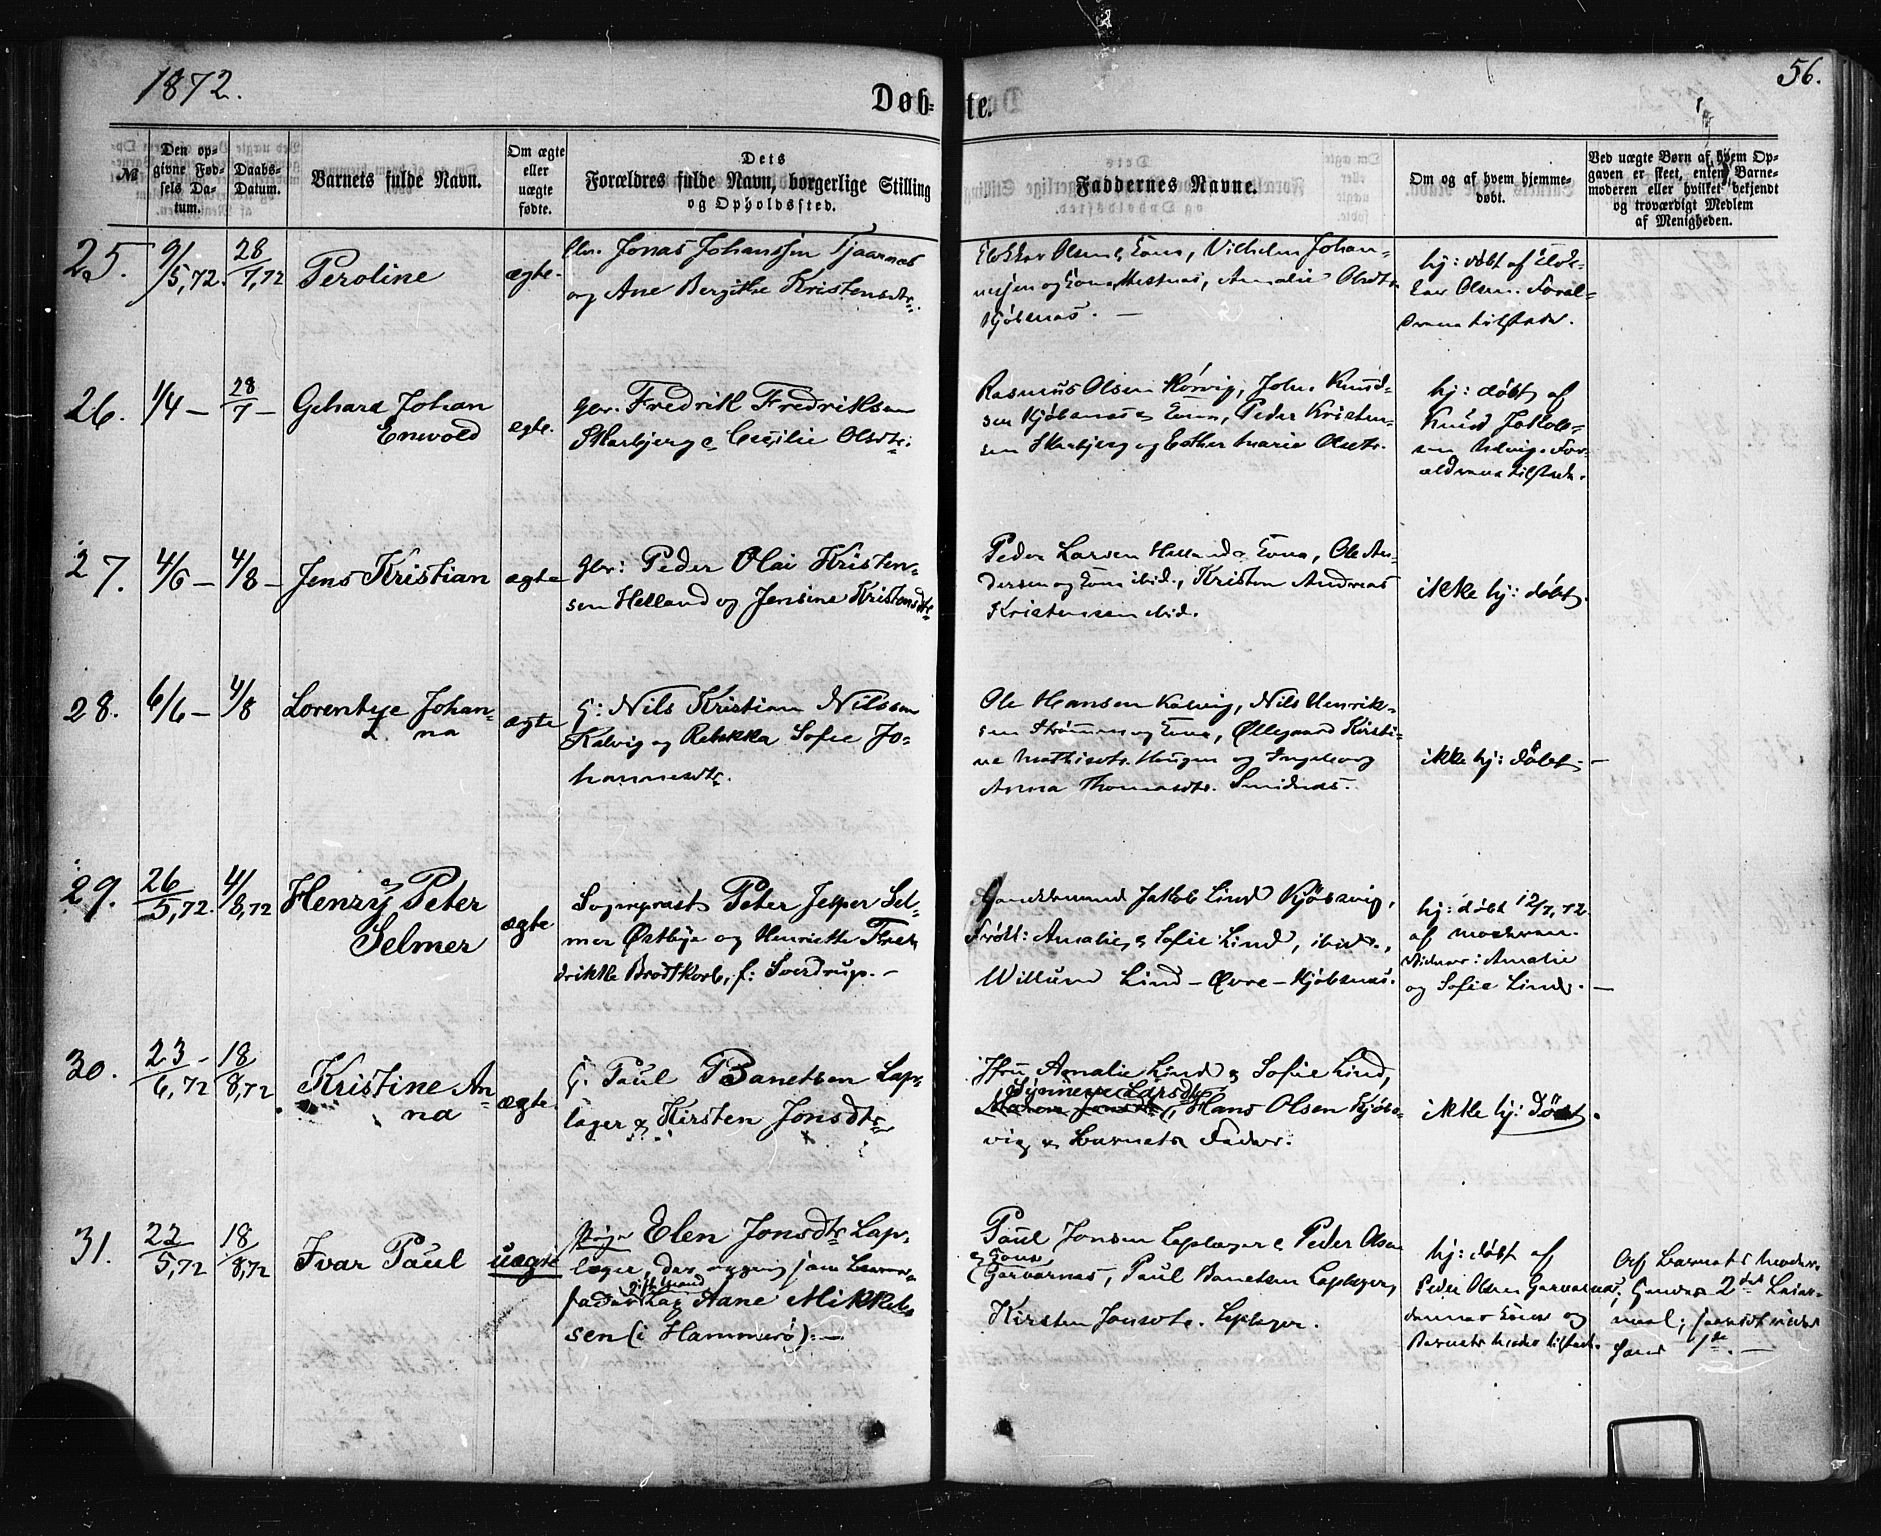 1872.
Døb-
te.
56.
№
Den op-
givne Fød-
sels Da-
tum.
Daabs-
Datum.
Barnets fulde Navn.
Om ægte
eller
uægte
fødte.
Dets
Forældres fulde Navn, borgerlige Stilling
og Opholdssted.
Faddernes Navne.
Om og af hvem hjemme-
døbt.
Ved uægte Børn af hvem Op-
gaven er skeet, enten Barne-
moderen eller hvilket bekjendt
og troværdigt Medlem
af Menigheden.
25.
9/5,72.
28/7,72
Peroline
ægte.
Jonas Johanssen Tjaarnæs
og Ane Bergithe Kristensdtr.
Olsen & Kone, Vilhelm Johan-
nesen og Kone, Amalie Olsdtr
Kjøbsnas. —
hj: døbt af
Olsen. Foræl-
drene tilstede.
26.
1/4 —
28/7 —
Gehard Johan
Enevold
egte.
Gbr. Fredrik Fredriksen
Skarbjerg & Cecilie Olsdtr:
Rasmus Olsen Rørvig, Joh. Knud-
sen Kjøbsnas & Kone, Peder Kristen-
sen Skarbjerg og Esther Marie Olsdtr.
hj: døbt af
Knud Jakob-
sen For-
ældrene tilstede.
27.
4/6 —
4/8 —
Jens Kristian
ægte
Gbr: Peder Olai Kristen-
sen Helland og Jensine Kristensdtr.
Peder Larsen Helland & Kone, Ole An-
dersen og Kone ibid., Kristen Andreas
Kristensen ibid.
ikke hj: døbt.
28.
6/6 —
4/8
Lorentze Johan-
na
ægte
G: Nils Kristian Nilssen
Kalvig og Rebekka Sofie Jo-
hannesdtr.
Ole Hansen Kalvig, Nils Henrik-
sen Strømmen og Kone, Øllegaard Kirsti-
ne Mathisdtr. Haugen og Ingeborg
Anna Thomasdtr. Smidnas.
ikke hj: døbt. —
29.
26/5,72.
4/8,72
Henry Peter
Selmer
ægte
Sogneprest Peter Jesper Sel-
mer Østbye og Henriette Fre-
drikke Brodtkorb, f: Sverdrup. —
Handelsmand Jakob Lind Kjøbsvig,
Frøk: Amalie & Sofie Lind, ibid.,
Willum Lind — Øvre — Kjøbsnas.
hj: døbt 12/7,72.
af moderen.
Vidner: Amalie
og Sofie Lind. —
30.
23/6,72 —
18/8,72
Kristine An-
na
ægte.
G: Paul Banetsen Lap-
læger & Kirsten Jonsdtr.
Jfru Amalie Lind & Sofie Lind,
Synneve Larsdtr
Jonsdtr, Hans Olsen Kjøbs-
vig & Barnets Fader.
ikke hj: døbt.
31.
22/5,72
18/8,72
Ivar Paul
uægte
Pige Elen Jonsdtr Lap-
læger, der opgiver som Barne-
fader Lap Aane Mikkel-
sen (i Hammerø). —
Paul Jonsen Laplæger & Peder Olsen
& Kone
Garvarnas, Paul Banetsen Laplæger,
Kirsten Jonsdtr. Laplæger.
hj: døbt af
Peder Olsen Garvarnas,
dennes Kone og
Barnets moder tilstede.
Af Barnets moder,
Hendes 2det Leier-
maal; Barnefaders
1ste. —